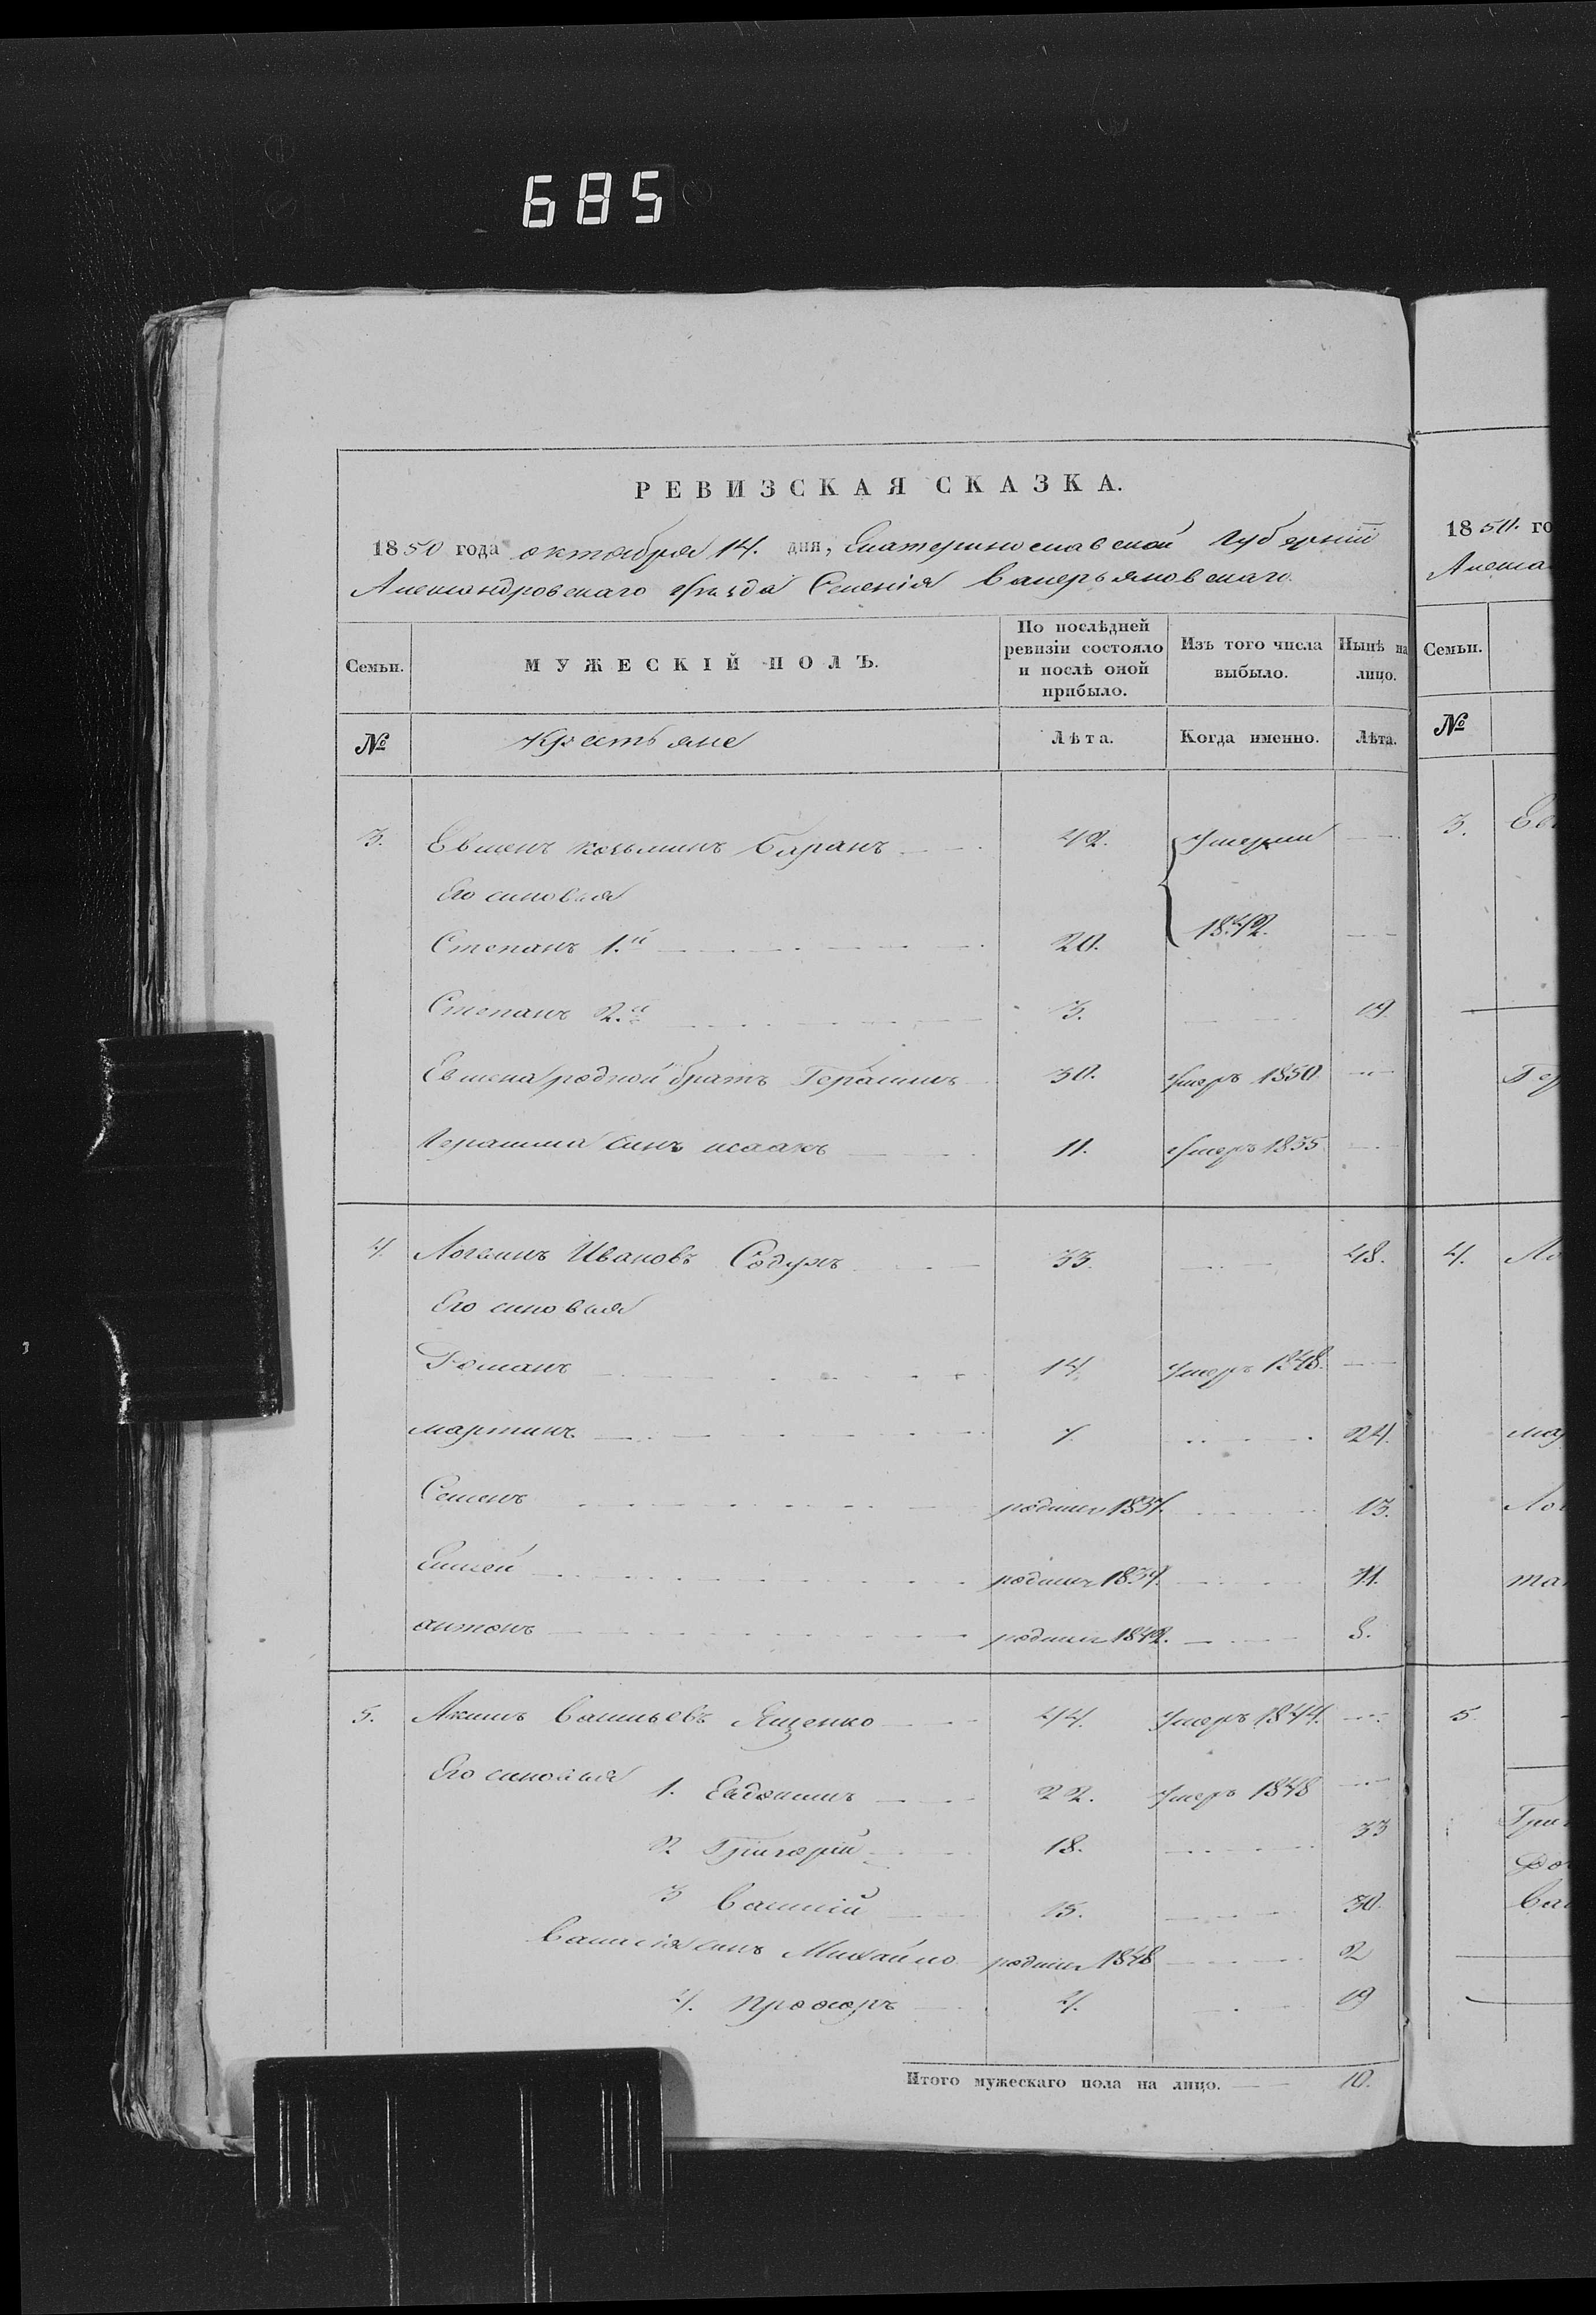 685
РЕВИЗСКАЯ СКАЗКА.
1850 года октября 14. дня, Екатеринославской Губерніи
Александровскаго уѣзда Селенія Валерьяновскаго.
Семьи.
МУЖЕСКІЙ ПОЛЪ.
По послѣдней ревизіи состояло и послѣ оной прибыло.
Изъ того числа выбыло.
Нынѣ на лицо.
№ Крестьяне Лѣта. Когда именно. Лѣта.
3. Евменъ козьминъ Баранъ 42. Умерли
Его синовья
Степанъ 1.й 20. 1842.
Степанъ 2.й 3. 19.
Евмена родной братъ Герасимъ 30. умеръ 1850
Герасима синъ исаакъ 11. умеръ 1835
4. Логвинъ Ивановъ 33. 48.
Его синовья
Романъ 14. Умеръ 1848.
мартинъ 24.
Семенъ родился 1837. 13.
Елисей родился 11.
антонъ родился 1842. 8.
5. Акимъ Васильевъ Ященко 44. Умеръ 1844.
Его синовья 1. Евдокимъ 22. Умеръ 1848
2 Григорій 18. 33
3 Василій 15. 30.
Василія синъ Михайло родился 1848 2
4. прохоръ 4. 19
Итого мужескаго пола на лицо. 10.
1850. го
Алекса
Семьи.
№
3. Ев
Гер
4. Ло
мар
5
Гри
Вас